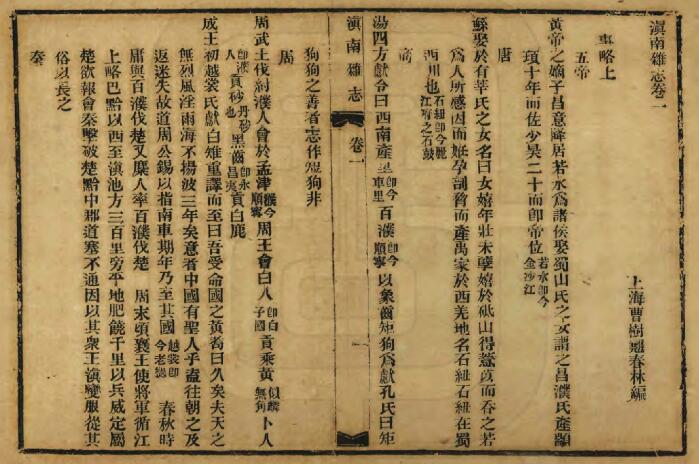 滇南雜志卷一
上海曹樹翹春林編
事略上
五帝
黃帝之嫡子昌意降居若水爲諸侯娶蜀山氏之女謂之昌濮氏產顓
頊十年而佐少昊二十而卽帝位若水卽今金沙江
唐
鯀娶於有莘氏之女名曰女嬉年壯未孳嬉於砥山得薏苡而吞之若
爲人所感因而姙孕剖脅而產禹家於西羌地名石紐石紐在蜀
西川也石紐卽今麗江府之石鼓
商
湯四方獻令曰西南產里卽今車里百濮卽今順寧以象齒短狗爲獻孔氏曰短
滇南雜志
卷一
狗狗之善者志作矩狗非
周
周武王伐紂濮人會於孟津濮今順寧周王會曰人卽白子國貢乘黃似麟無角卜人
卽濮人貢砂丹砂黑齒卽永昌夷貢白鹿
成王初越裳氏獻白雉重譯而至曰吾受命國之黃耇曰久矣夫天之
無烈風淫雨海不揚波三年矣意者中國有聖人乎盍往朝之及
返迷失故道周公錫以指南車期年乃至其國越裳卽今老撾　春秋時
庸與百濮伐楚又麇人率百濮伐楚　周末頃襄王使將軍循江
上略巴黔以西至滇池方三百里旁平地肥饒千里以兵威定屬
楚欲報會秦擊破楚黔中郡道塞不通因以其衆王滇變服從其
俗以長之
秦